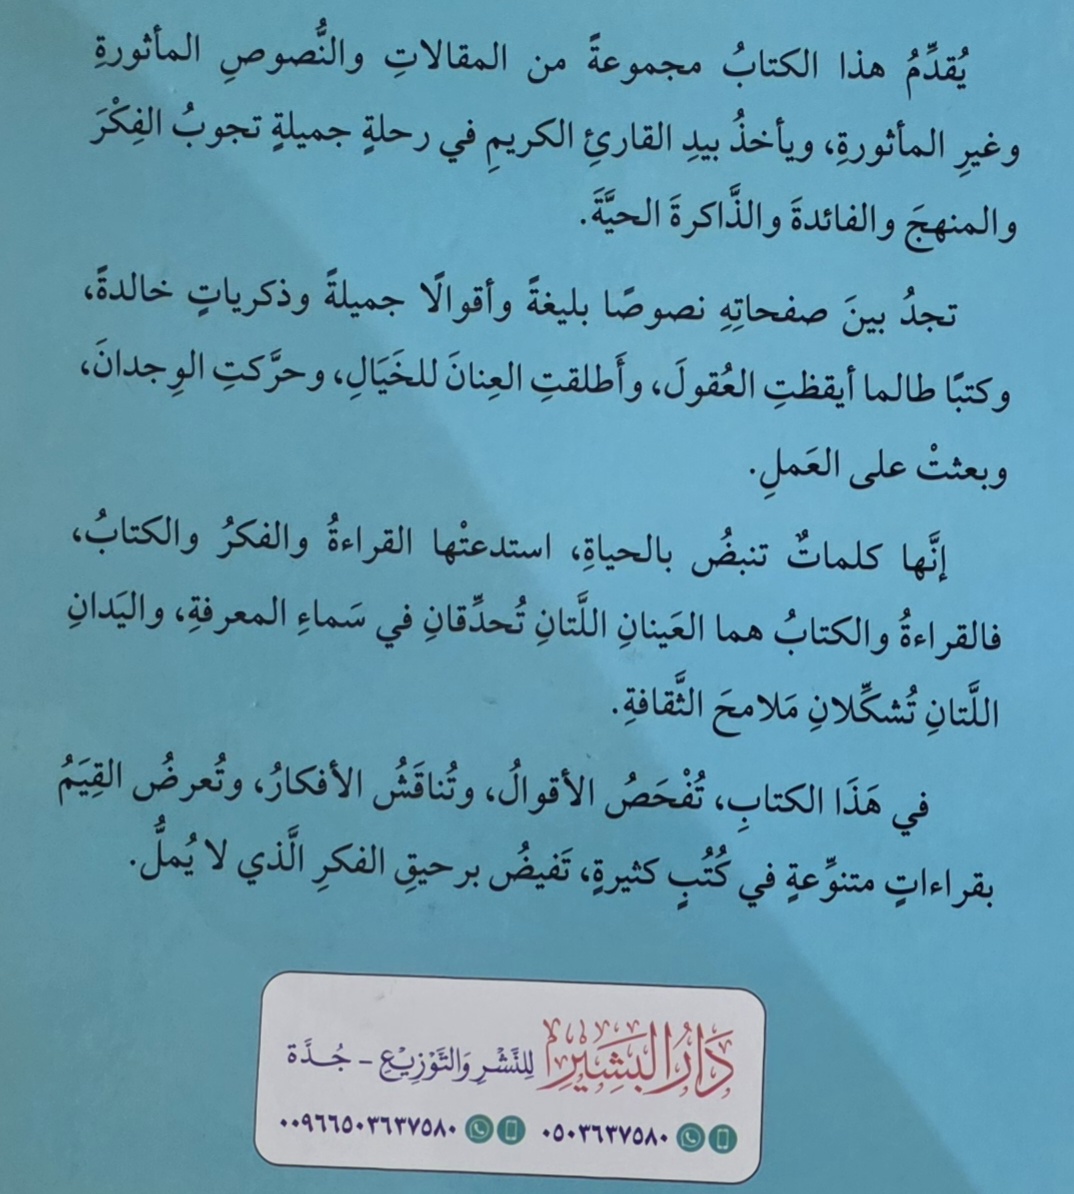 يُقدِّمُ هذا الكتابُ مجموعةً من المقالاتِ والنُّصوصِ المأثورةِ
وغيرِ المأثورةِ، ويأخذُ بيدِ القارئِ الكريمِ في رحلةٍ جميلةٍ تجوبُ الفِكْرَ
والمنهجَ والفائدةَ والذَّاكرةَ الحيَّةَ.
تجدُ بينَ صفحاتِهِ نصوصًا بليغةً وأقوالًا جميلةً وذكرياتٍ خالدةً،
وكتبًا طالما أيقظتِ العُقولَ، وأَطلقتِ العِنانَ للخَيَالِ، وحرَّكتِ الوِجدانَ،
وبعثتْ على العَملِ.
إنَّها كلماتٌ تنبضُ بالحياةِ، استدعتْها القراءةُ والفكرُ والكتابُ،
فالقراءةُ والكتابُ هما العَينانِ اللَّتانِ تُحدِّقانِ في سَماءِ المعرفةِ، واليَدانِ
اللَّتانِ تُشكِّلانِ مَلامحَ الثَّقافةِ.
في هَذَا الكتابِ، تُفْحَصُ الأقوالُ، وتُناقَشُ الأفكارُ، وتُعرضُ القِيَمُ
بقراءاتٍ متنوِّعةٍ في كُتُبٍ كثيرةٍ، تَفيضُ برحيقِ الفكرِ الَّذي لا يُملُّ.
دَارُ البَشِيْرِ لِلنَّشْرِ وَالتَّوْزِيْعِ - جُدَّة
٠٥٠٣٦٣٧٥٨٠ ٠٠٩٦٦٥٠٣٦٣٧٥٨٠